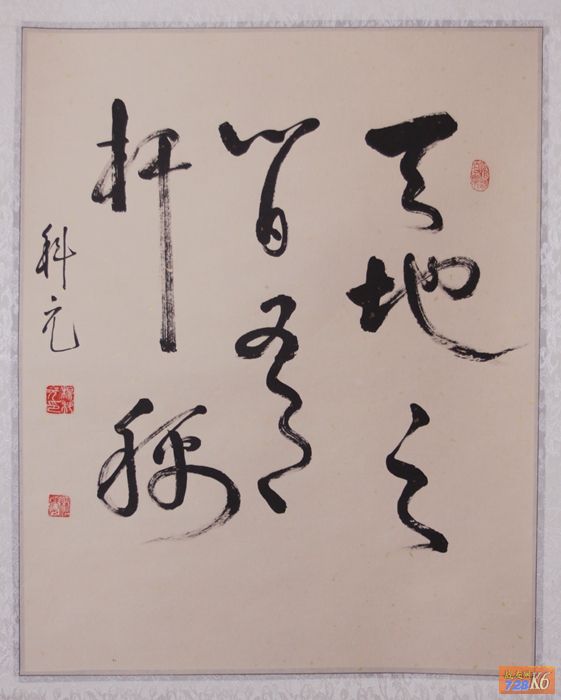 天地之
間有
杆稱
科元
K6